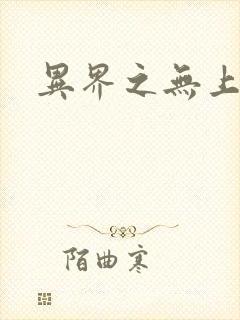 異界之無上
陌曲寒